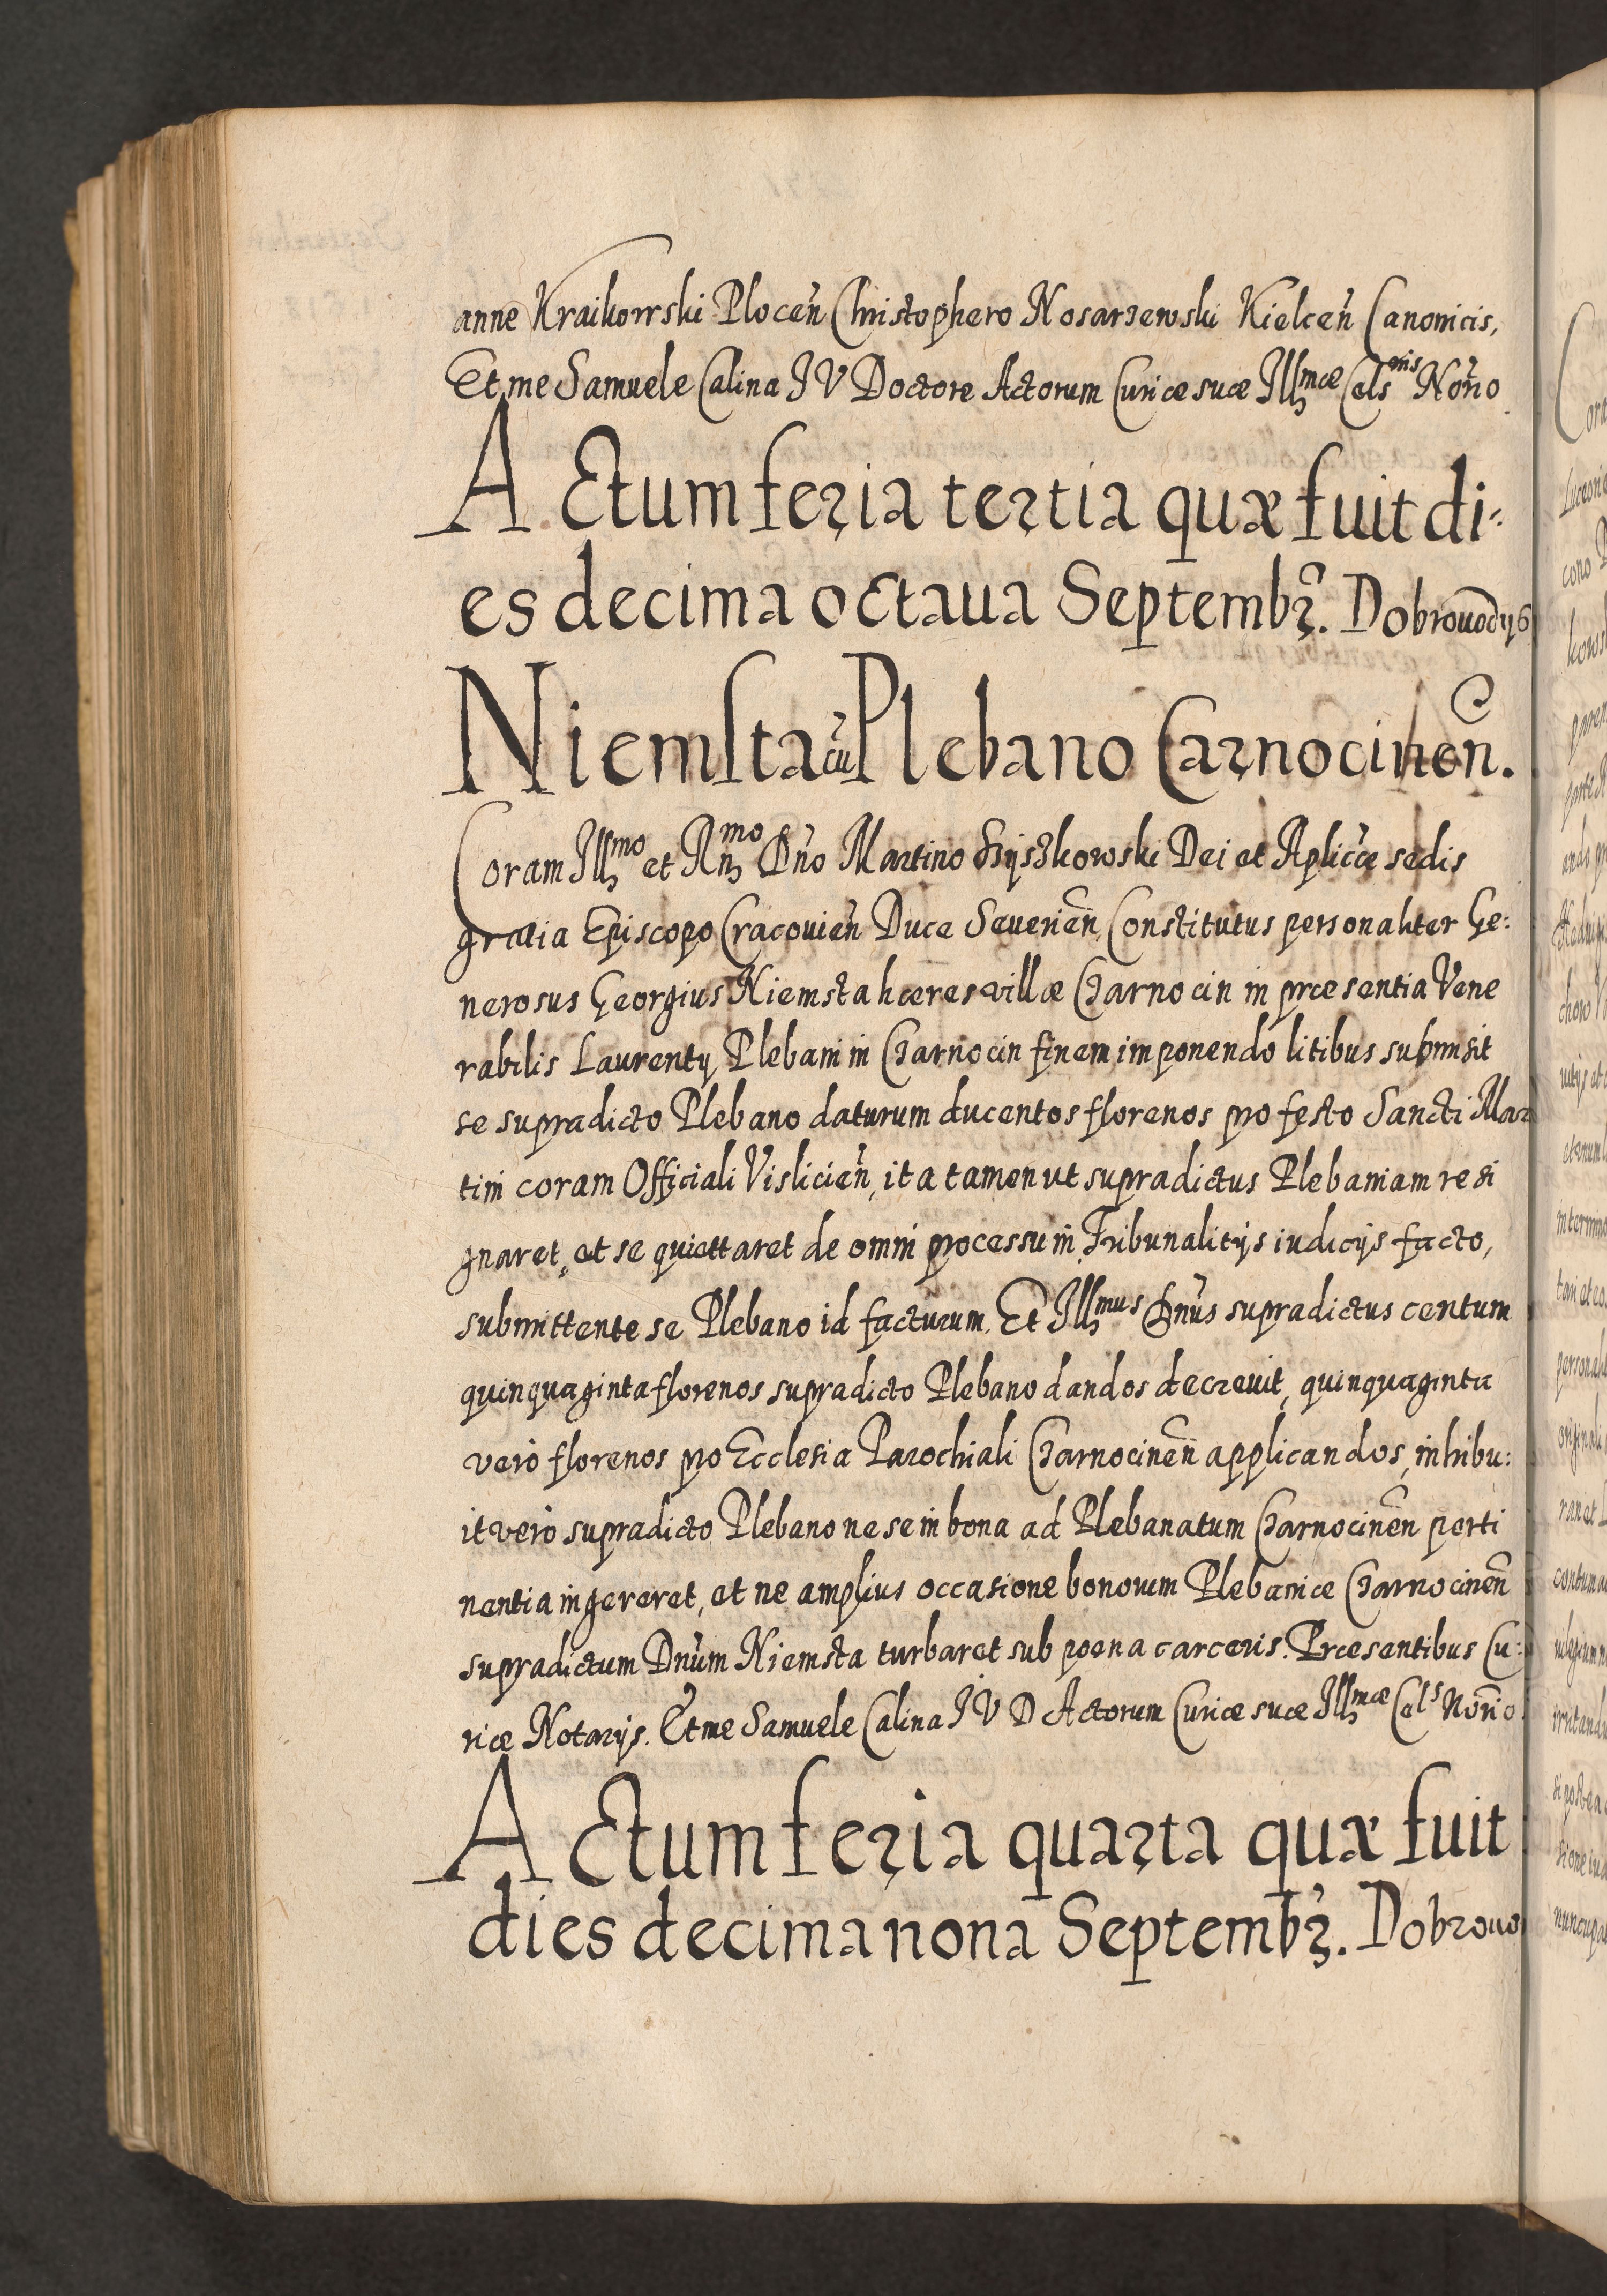 anne Kraikowski Plocen̄ Christophero Nosarzewski Kielcen̄ Canonicis,
Et me Samuele Calina J V Doctore Actorum Curiæ suæ Illmæ Celsnis Nōrio
Actum feria tertia quæ fuit di-
es decima octaua Septembr. Dobrouodys
Niemsta cū Plebano Carnocinen̄.
Coram Illmo et Rnmo Dn̄o Martino Szyszkowski Dei et Aplicæ sedis
gratia Episcopo Cracouien̄ Duce Seuerien̄, Constitutus personaliter Ge:
nerosus Georgius Niemsta hæres villæ Czarnocin in præsentia Vene
rabilis Laurentij Plebani in Czarnocin finem imponendo litibus submisit
se supradicto Plebano daturum ducentos florenos pro festo Sancti Mar
tini coram Officiali Vislicien̄, ita tamen ut supradictus Plebaniam resi
gnaret, et se quiettaret de omni processu in Tribunalitijs iudicijs facto,
submittente se Plebano id facturum. Et Illmus Dn̄us supradictus centum
quinquaginta florenos supradicto Plebano dandos decreuit, quinquaginta
vero florenos pro Ecclesia Parochiali Czarnocinen̄ applicandos, inhibu:
it vero supradicto Plebano ne se in bona ad Plebanatum Czarnocinen̄ perti
nentia ingereret, et ne amplius occasione bonorum Plebaniæ Czarnocinen̄
supradictum Dn̄um Niemsta turbaret sub poena carceris. Præsentibus Cu:
riæ Notarijs. Et me Samuele Calina J V D Actorum Curiæ suæ Illmæ Cels Nōrio
Actum feria quarta quæ fuit
dies decima nona Septembr. Dobrouo